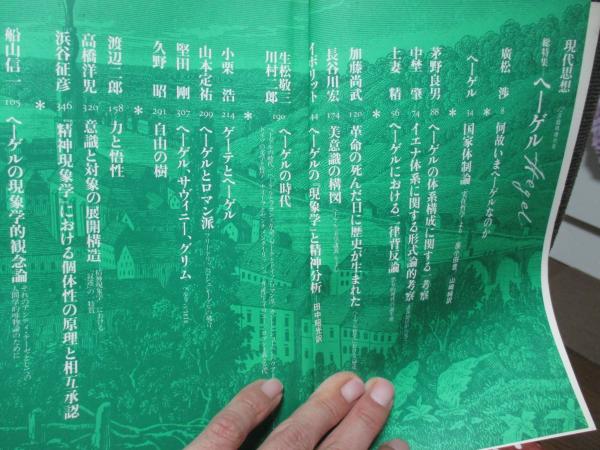 現代思想
総特集 ヘーゲル Hegel
廣松 渉 8 何故いまヘーゲルなのか
*
ヘーゲル 34 国家体制論
茅野良男 88 ヘーゲルの体系構成に関する一考察
中埜 肇 74 イエナ体系に関する形式論的考察
上妻 精 56 ヘーゲルにおける二律背反論
*
加藤尚武 120 革命の死んだ日に歴史が生まれた
長谷川宏 174 美意識の構図
イポリット 44 ヘーゲルの『現象学』と精神分析 田中昭光訳
*
生松敬三
川村二郎 190 ヘーゲルの時代
*
小栗 浩 214 ゲーテとヘーゲル
山本定祐 299 ヘーゲルとロマン派
堅田 剛 307 ヘーゲル、サヴィニー、グリム
久野 昭 291 自由の樹
*
渡辺二郎 158 力と悟性
高橋洋児 320 意識と対象の展開構造
浜谷征彦 346 『精神現象学』における個体性の原理と相互承認
*
船山信一 105 ヘーゲルの現象学的観念論